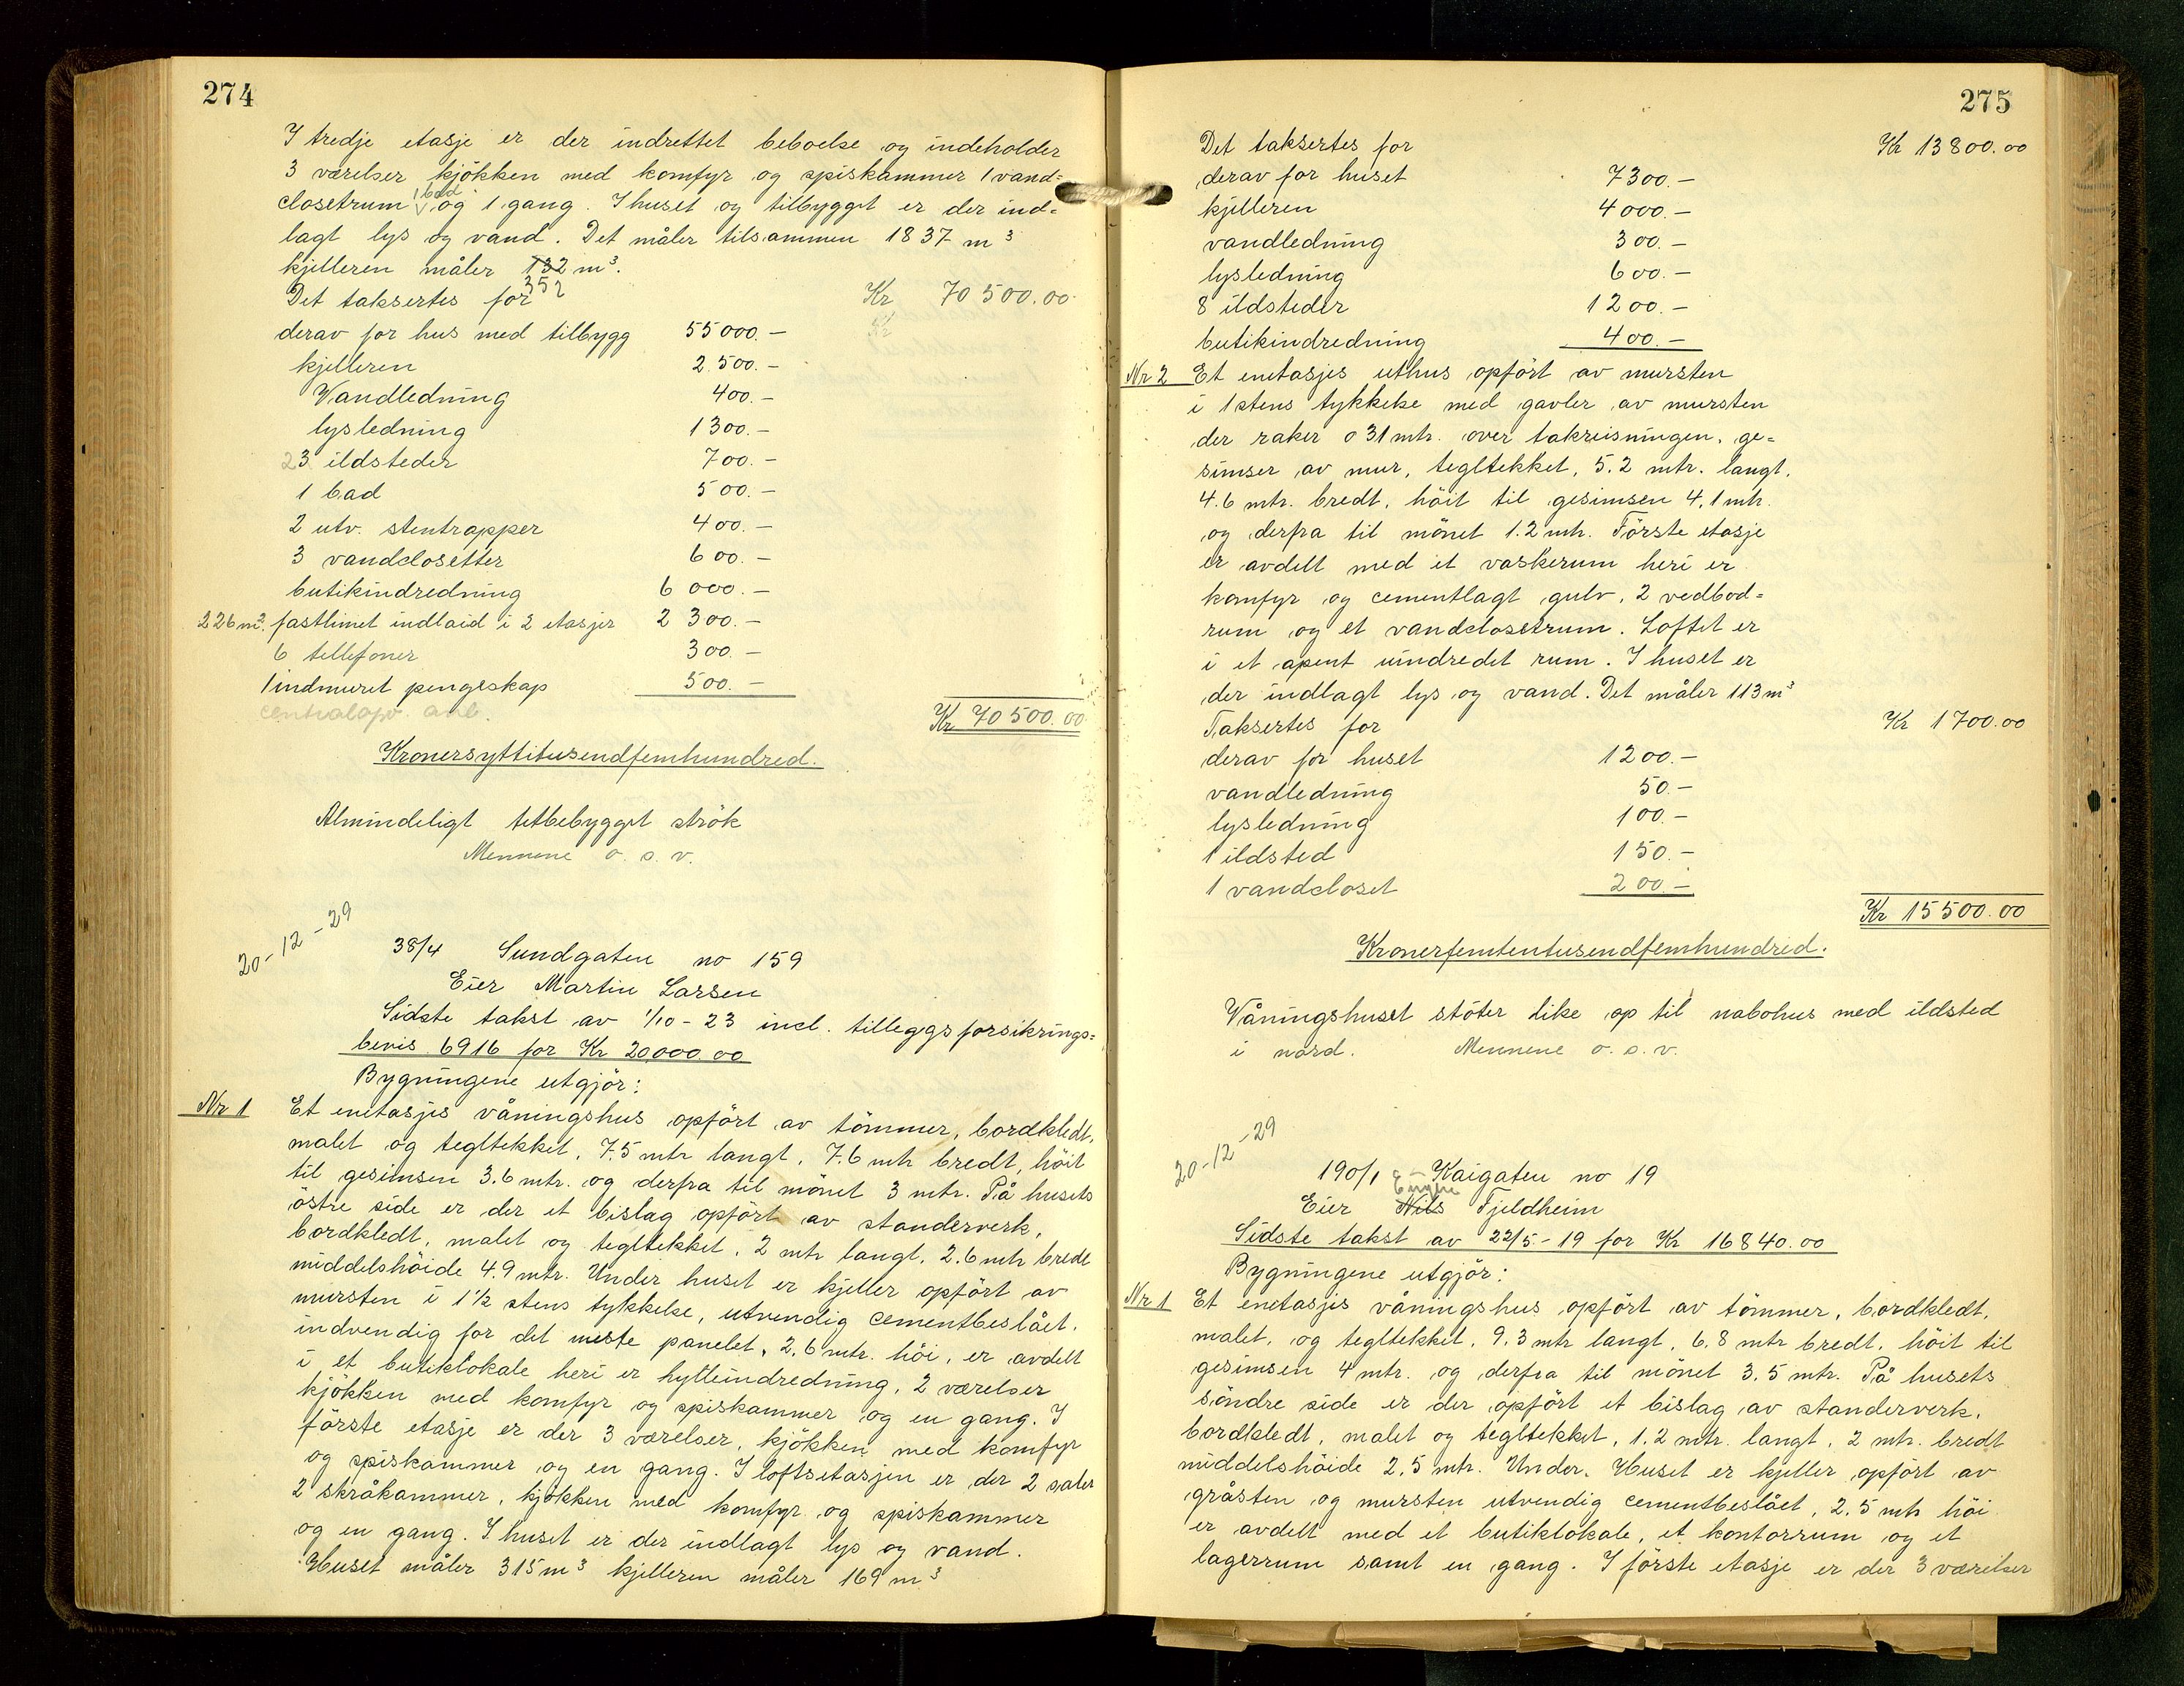 274
I tredje etasje er der indrettet beboelse og indeholder
3 værelser kjökken med komfyr og spiskammer 1 vand=
closetrum 1 bad og 1 gang. I huset og tilbygget er der ind=
lagt lys og vand. Det måler tilsammen 1837 m³
kjelleren måler 132 m³.
352
Det taksertes for Kr 70 500.00
derav for hus med tilbygg 55 000.— Kr
kjelleren 2.500.—
Vandledning 400.—
lysledning 1300.—
23 ildsteder 700.—
1 bad 500.—
2 utv. stentrapper 400.—
3 vandclosetter 600.—
butikindredning 6 000.—
226 m² fastlimet indlaid i 2 etasjer 2 300.—
6 tellefoner 300.—
1 indmuret pengeskap 500.—
centralopv. anl. Kr 70 500.00
Kronersyttitusendfemhundred.
Almindeligt tetbebygget strök
Mennene o. s. v.
20-12-29
38/4 Sundgaten no 159
Eier Martin Larsen
Sidste takst av 1/10-23 incl. tilleggsforsikrings=
bevis 6916 for Kr 20,000.00
Bygningene utgjör:
Nr 1 Et enetasjes våningshus opfört av tömmer, bordkledt,
malet og tegltekket, 7.5 mtr langt, 7.6 mtr bredt, höit
til gesimsen 3.6 mtr. og derfra til mönet 3 mtr. På husets
östre side er der et bislag opfört av standerverk,
bordkledt, malet og tegltekket, 2 mtr langt, 2.6 mtr bredt
middelshöide 4.9 mtr. Under huset er kjeller opfört av
mursten i 1½ stens tykkelse, utvendig cementbeslået,
indvendig for det meste panelet, 2,6 mtr. höi, er avdelt
i et butiklokale heri er hylleindredning, 2 værelser
kjökken med komfyr og spiskammer og en gang. I
förste etasje er der 3 værelser, kjökken med komfyr
og spiskammer og en gang. I loftsetasjen er der 2 saler
2 skråkammer, kjökken med komfyr og spiskammer
og en gang. I huset er der indlagt lys og vand.
Huset måler 315 m³ kjelleren måler 169 m³
275
Det taksertes for Kr 13800.00
derav for huset 7300.—
kjelleren 4000.—
vandledning 300.—
lysledning 600.—
8 ildsteder 1200.—
butikindredning 400.—
Nr 2 Et enetasjes uthus opfört av mursten
i 1 stens tykkelse med gavler av mursten
der raker 0 31 mtr. over takreisningen, ge=
simser av mur, tegltekket, 5.2 mtr. langt,
4.6 mtr. bredt, höit til gesimsen 4,1 mtr.
og derfra til mönet 1.2 mtr. Förste etasje
er avdelt med et vaskerum heri er
komfyr og cementlagt gulv, 2 vedbod=
rum og et vandclosetrum. Loftet er
i et apent uindredet rum. I huset er
der indlagt lys og vand. Det måler 113 m³
Taksertes for Kr 1700.00
derav for huset 1200.—
vandledning 50.—
lysledning 100.—
1 ildsted 150.—
1 vandcloset 200.—
Kr 15500.00
Kronerfemtentusendfemhundred.
Våningshuset stöter like op til nabohus med ildsted
i nord. Mennene o. s. v.
20-12-29
190/1 Kaigaten no 19
Eier Nils Fjeldheim
Sidste takst av 22/5-19 for Kr 16840.00
Bygningene utgjör:
Nr 1 Et enetasjes våningshus opfört av tömmer, bordkledt,
malet, og tegltekket, 9.3 mtr langt, 6,8 mtr bredt, höit til
gesimsen 4 mtr. og derfra til mönet 3.5 mtr. På husets
söndre side er der opfört et bislag av standerverk,
bordkledt, malet og tegltekket, 1.2 mtr. langt, 2 mtr. bredt
middelshöide 2,5 mtr. Under. Huset er kjeller opfört av
gråsten og mursten utvendig cementbeslået, 2.5 mtr höi
er avdelt med et butiklokale, et kontorrum og et
lagerrum samt en gang. I förste etasje er der 3 værelser